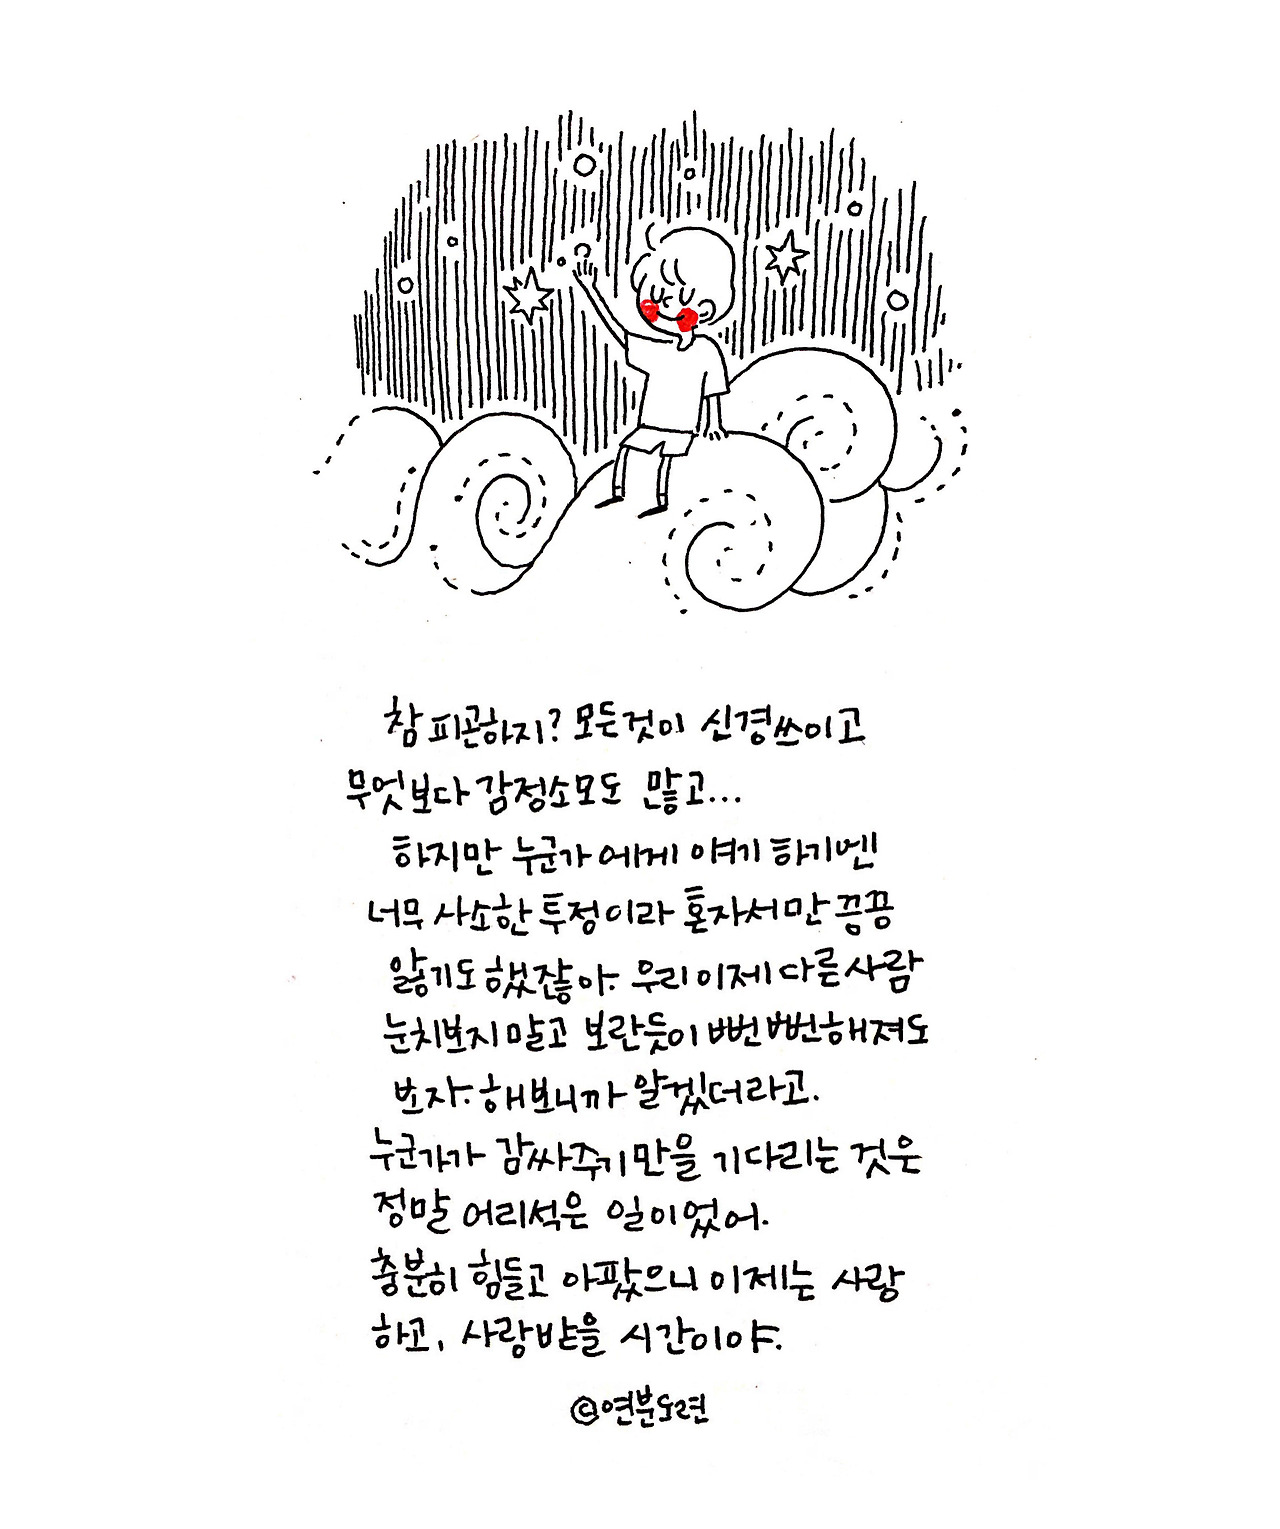 참 피곤하지? 모든것이 신경쓰이고
무엇보다 감정소모도 많고...
하지만 누군가에게 얘기하기엔
너무 사소한 투정이라 혼자서만 끙끙
앓기도 했잖아. 우리 이제 다른사람
눈치보지말고 보란듯이 뻔뻔해져도
보자. 해보니까 알겠더라고.
누군가가 감싸주기만을 기다리는 것은
정말 어리석은 일이었어.
충분히 힘들고 아팠으니 이제는 사랑
하고, 사랑받을 시간이야.
©연분도련